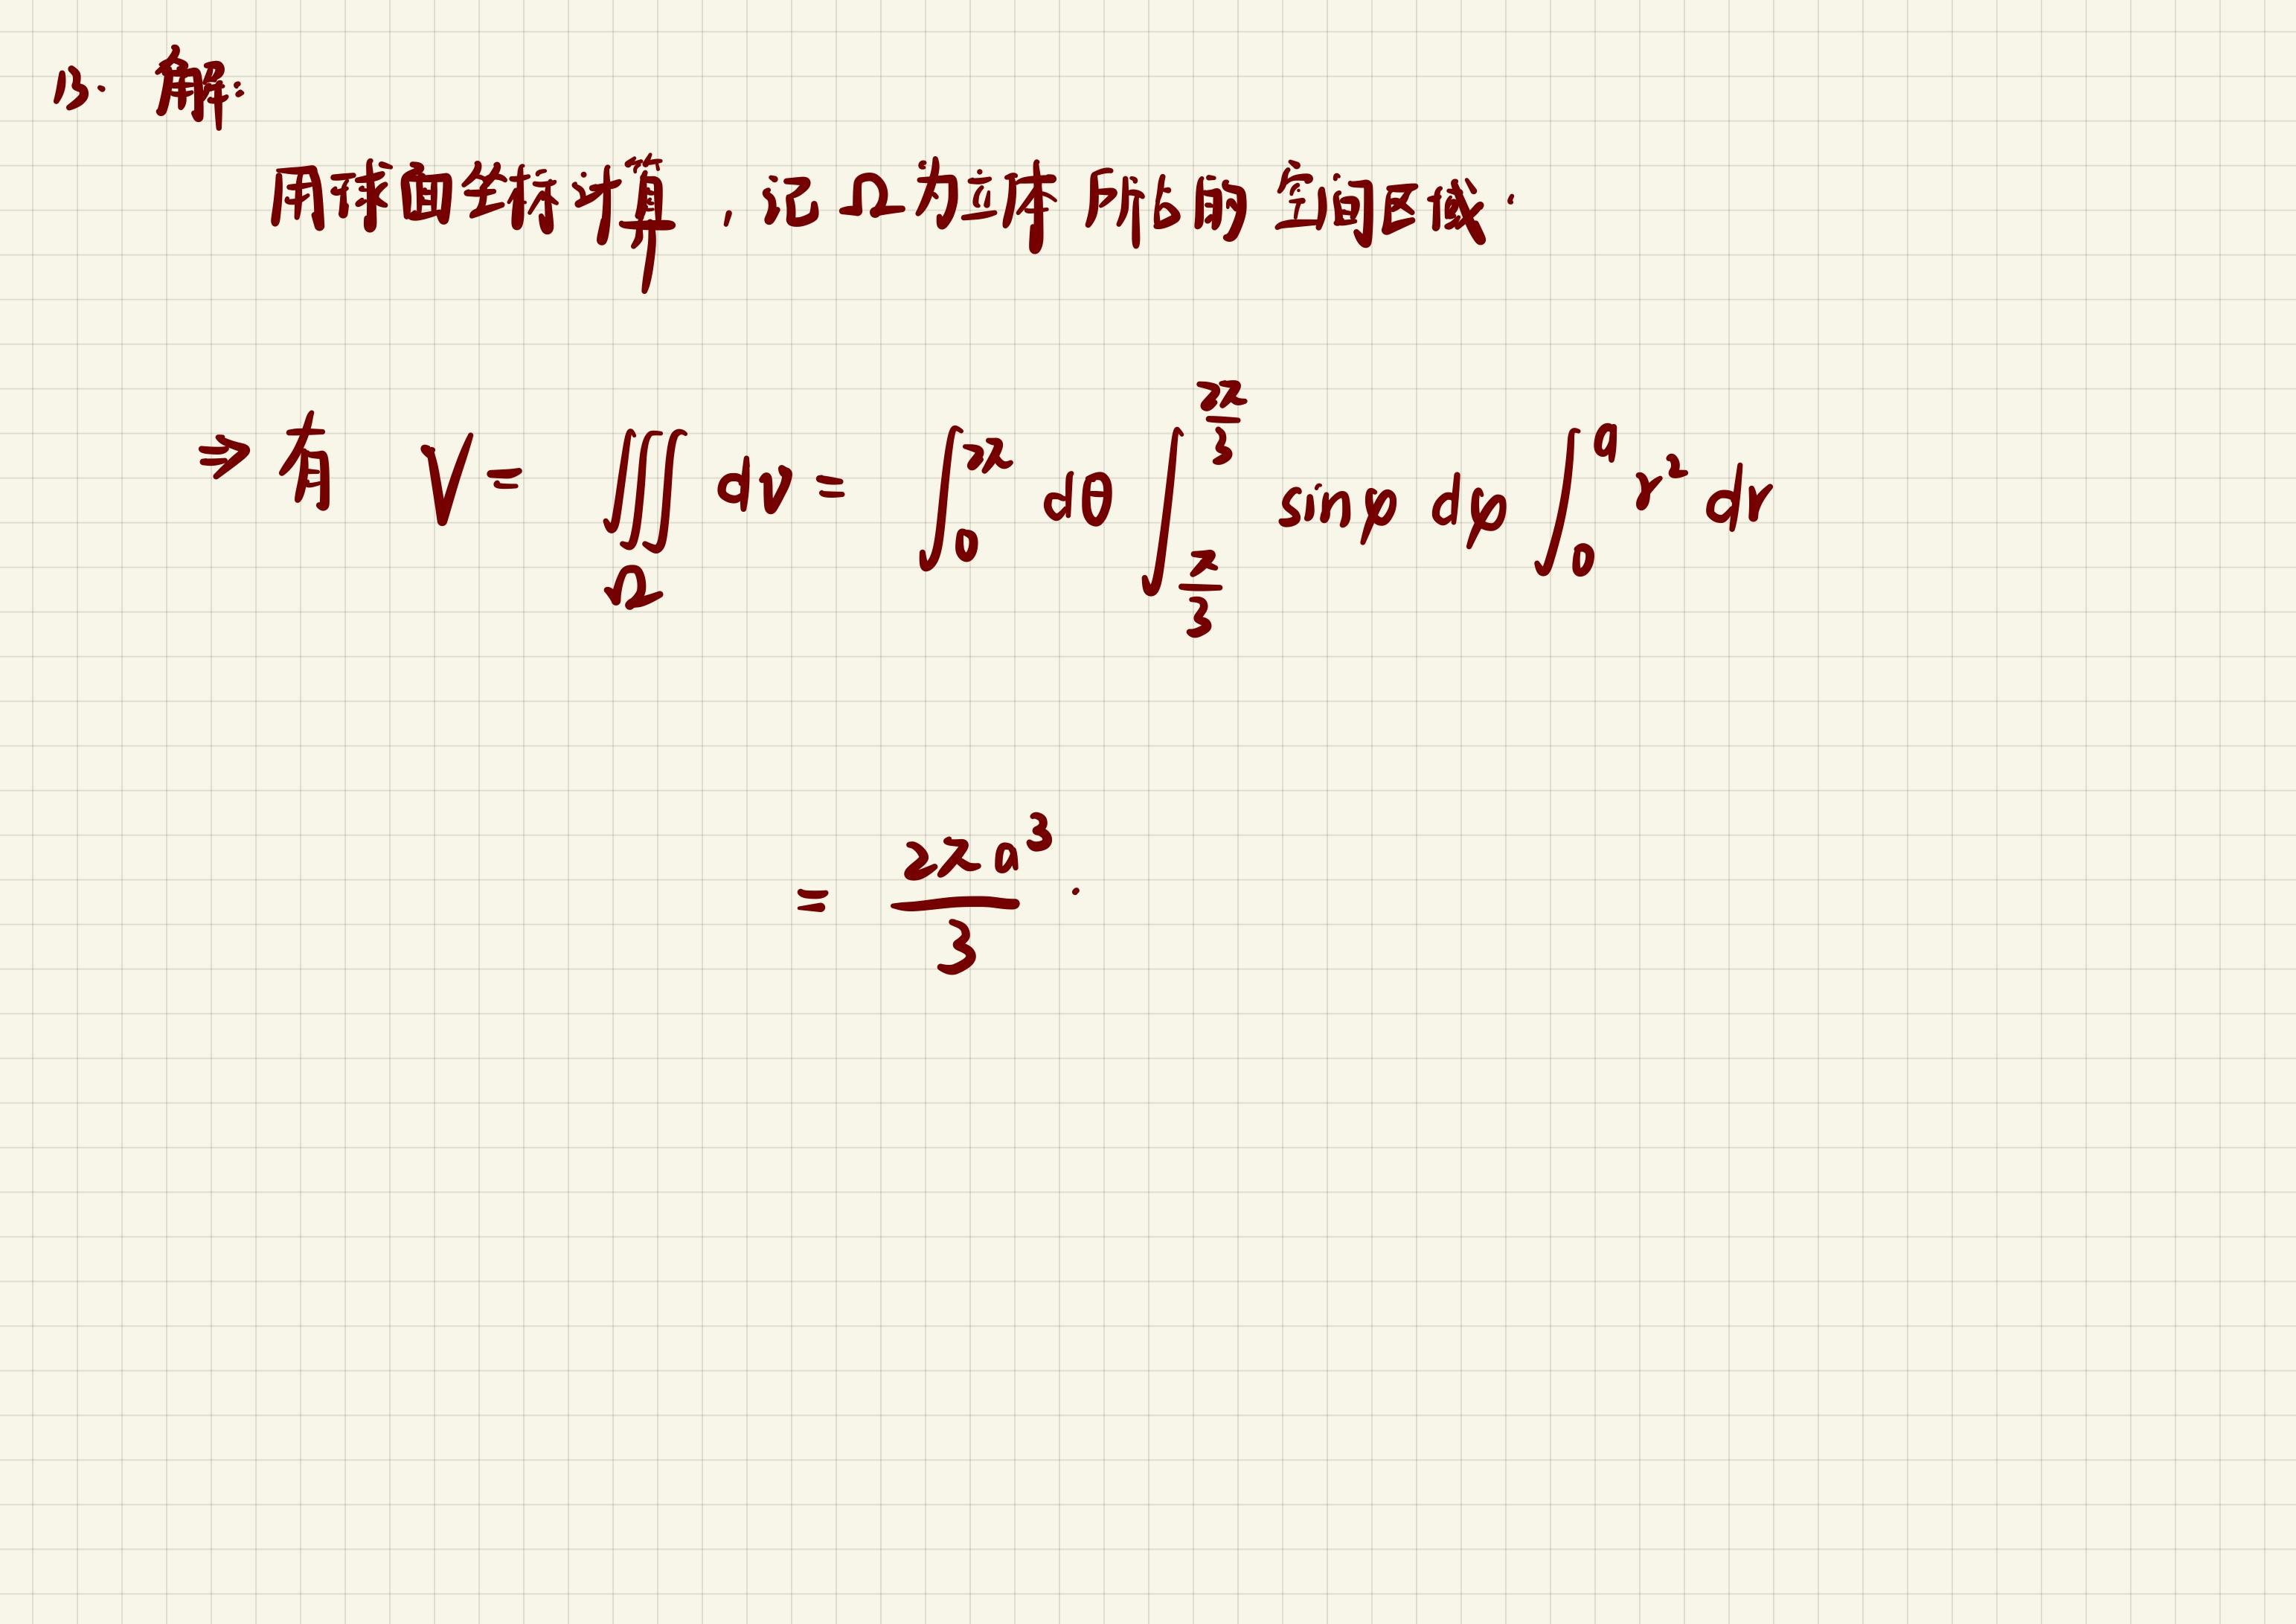 13. 解:
用球面坐标计算,记Ω为立体所占的空间区域.
⇒有 V = ∭_Ω dv = ∫_0^{2π} dθ ∫_{π/3}^{2π/3} sinφ dφ ∫_0^a r² dr
= 2πa³/3 .